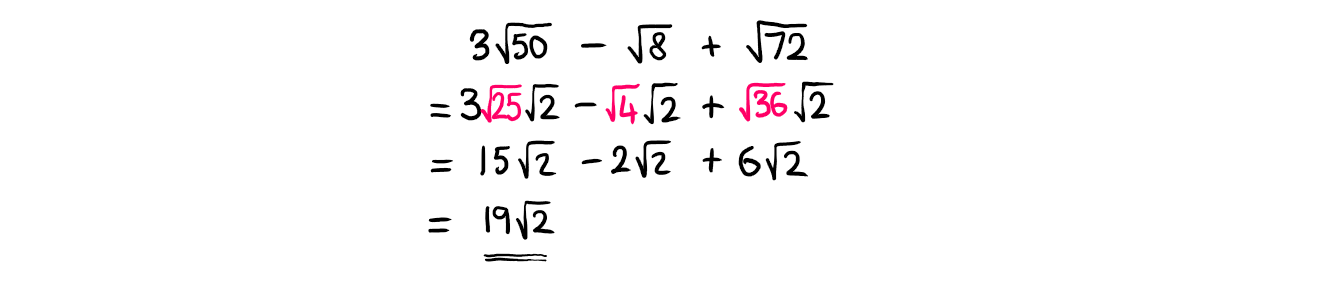 3√50 - √8 + √72
= 3√25√2 - √4√2 + √36√2
= 15√2 - 2√2 + 6√2
= 19√2